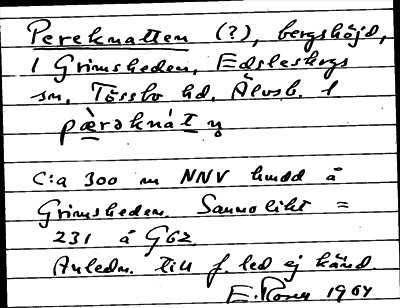 Pereknatten (?), bergshöjd,
i Grimsheden, Edsleskogs
sn, Tössbo hd, Älvsb. l
pærəknátn̥
C:a 300 m NNV hmdd å
Grimsheden. Sannolikt =
231 å G62.
Anledn. till f. led ej känd.
E. Rosell 1964